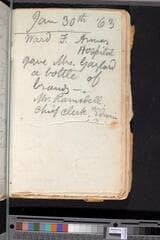 Jan 30th '63
Ward F. Armory
Hospital
gave Mr. Gaylord
a bottle of
brandy —
Mr. Ramsdell
Chief Clerk